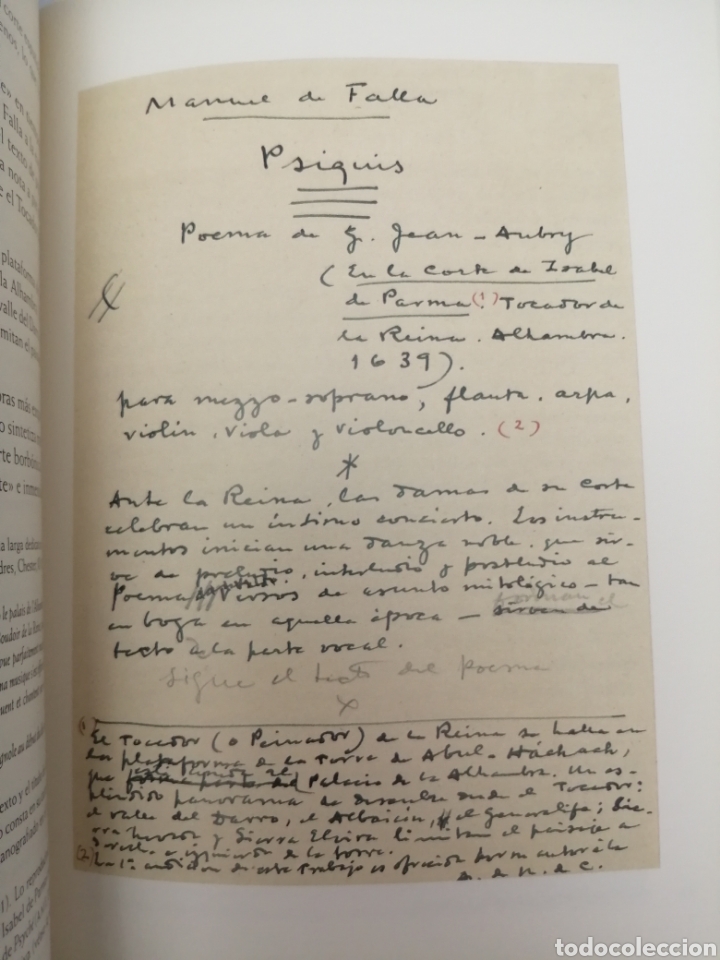 Manuel de Falla
Psiquis
Poema de G. Jean-Aubry
(En la Corte de Isabel
de Parma (1). Tocador de
la Reina. Alhambra.
1639).
para mezzo-soprano, flauta, arpa,
violín, viola y violoncello. (2)
Ante la Reina, las damas de su Corte
celebran un íntimo concierto. Los instru-
mentos inician una danza noble, que sir-
ve de preludio, interludio y postludio al
Poema. Versos de asunto mitológico – tan
en boga en aquella época – sirven de
texto a la parte vocal.
Sigue el texto del poema
(1)
El Tocador (o Peinador) de la Reina se halla en
la plataforma de la Torre de Abul-Háchach,
que forma parte del Palacio de la Alhambra. Un es-
pléndido panorama se descubre desde el Tocador:
el valle del Darro, el Albaicín, el Generalife; Sie-
rra Nevada y Sierra Elvira limitan el paisaje a
derecha e izquierda de la torre.
(2) La 1ª audición de este trabajo es ofrecida por su autor a la
todocoleccion